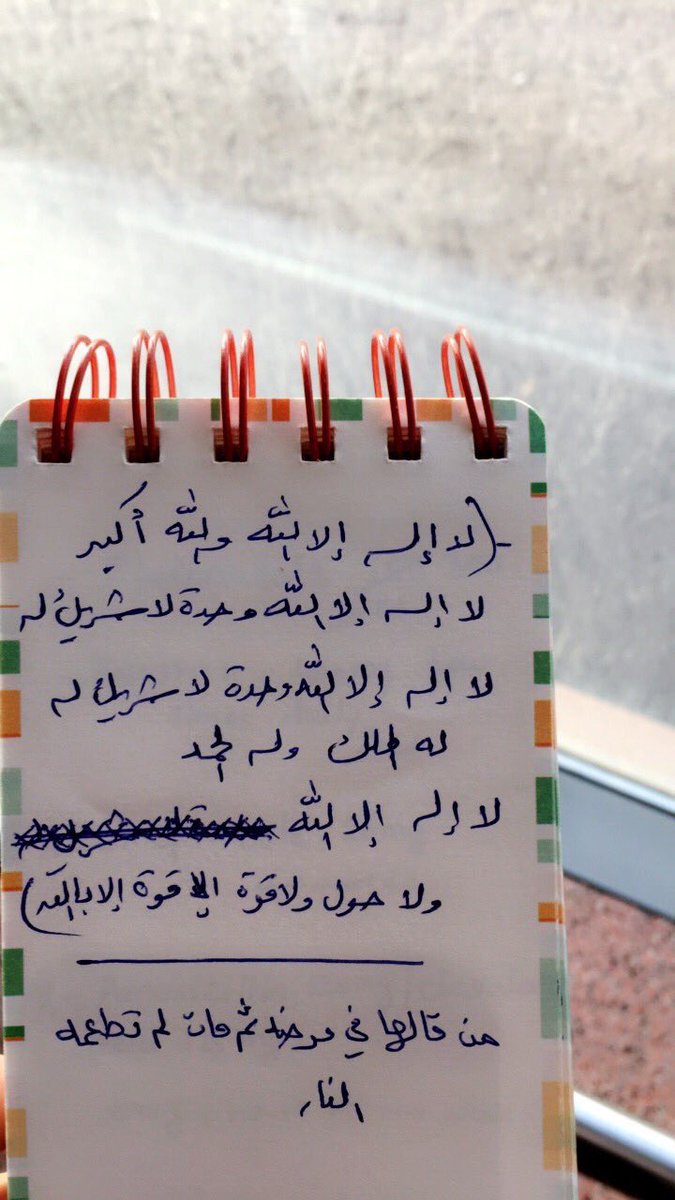 -(لا إله إلا الله والله أكبر
لا إله إلا الله وحدة لا شريك له
لا إله إلا الله وحدة لا شريك له
له الملك وله الحمد
لا إله إلا الله
ولا حول ولا قوة إلا باالله)
من قالها في مرضه ثم مات لم تطعمه
النار